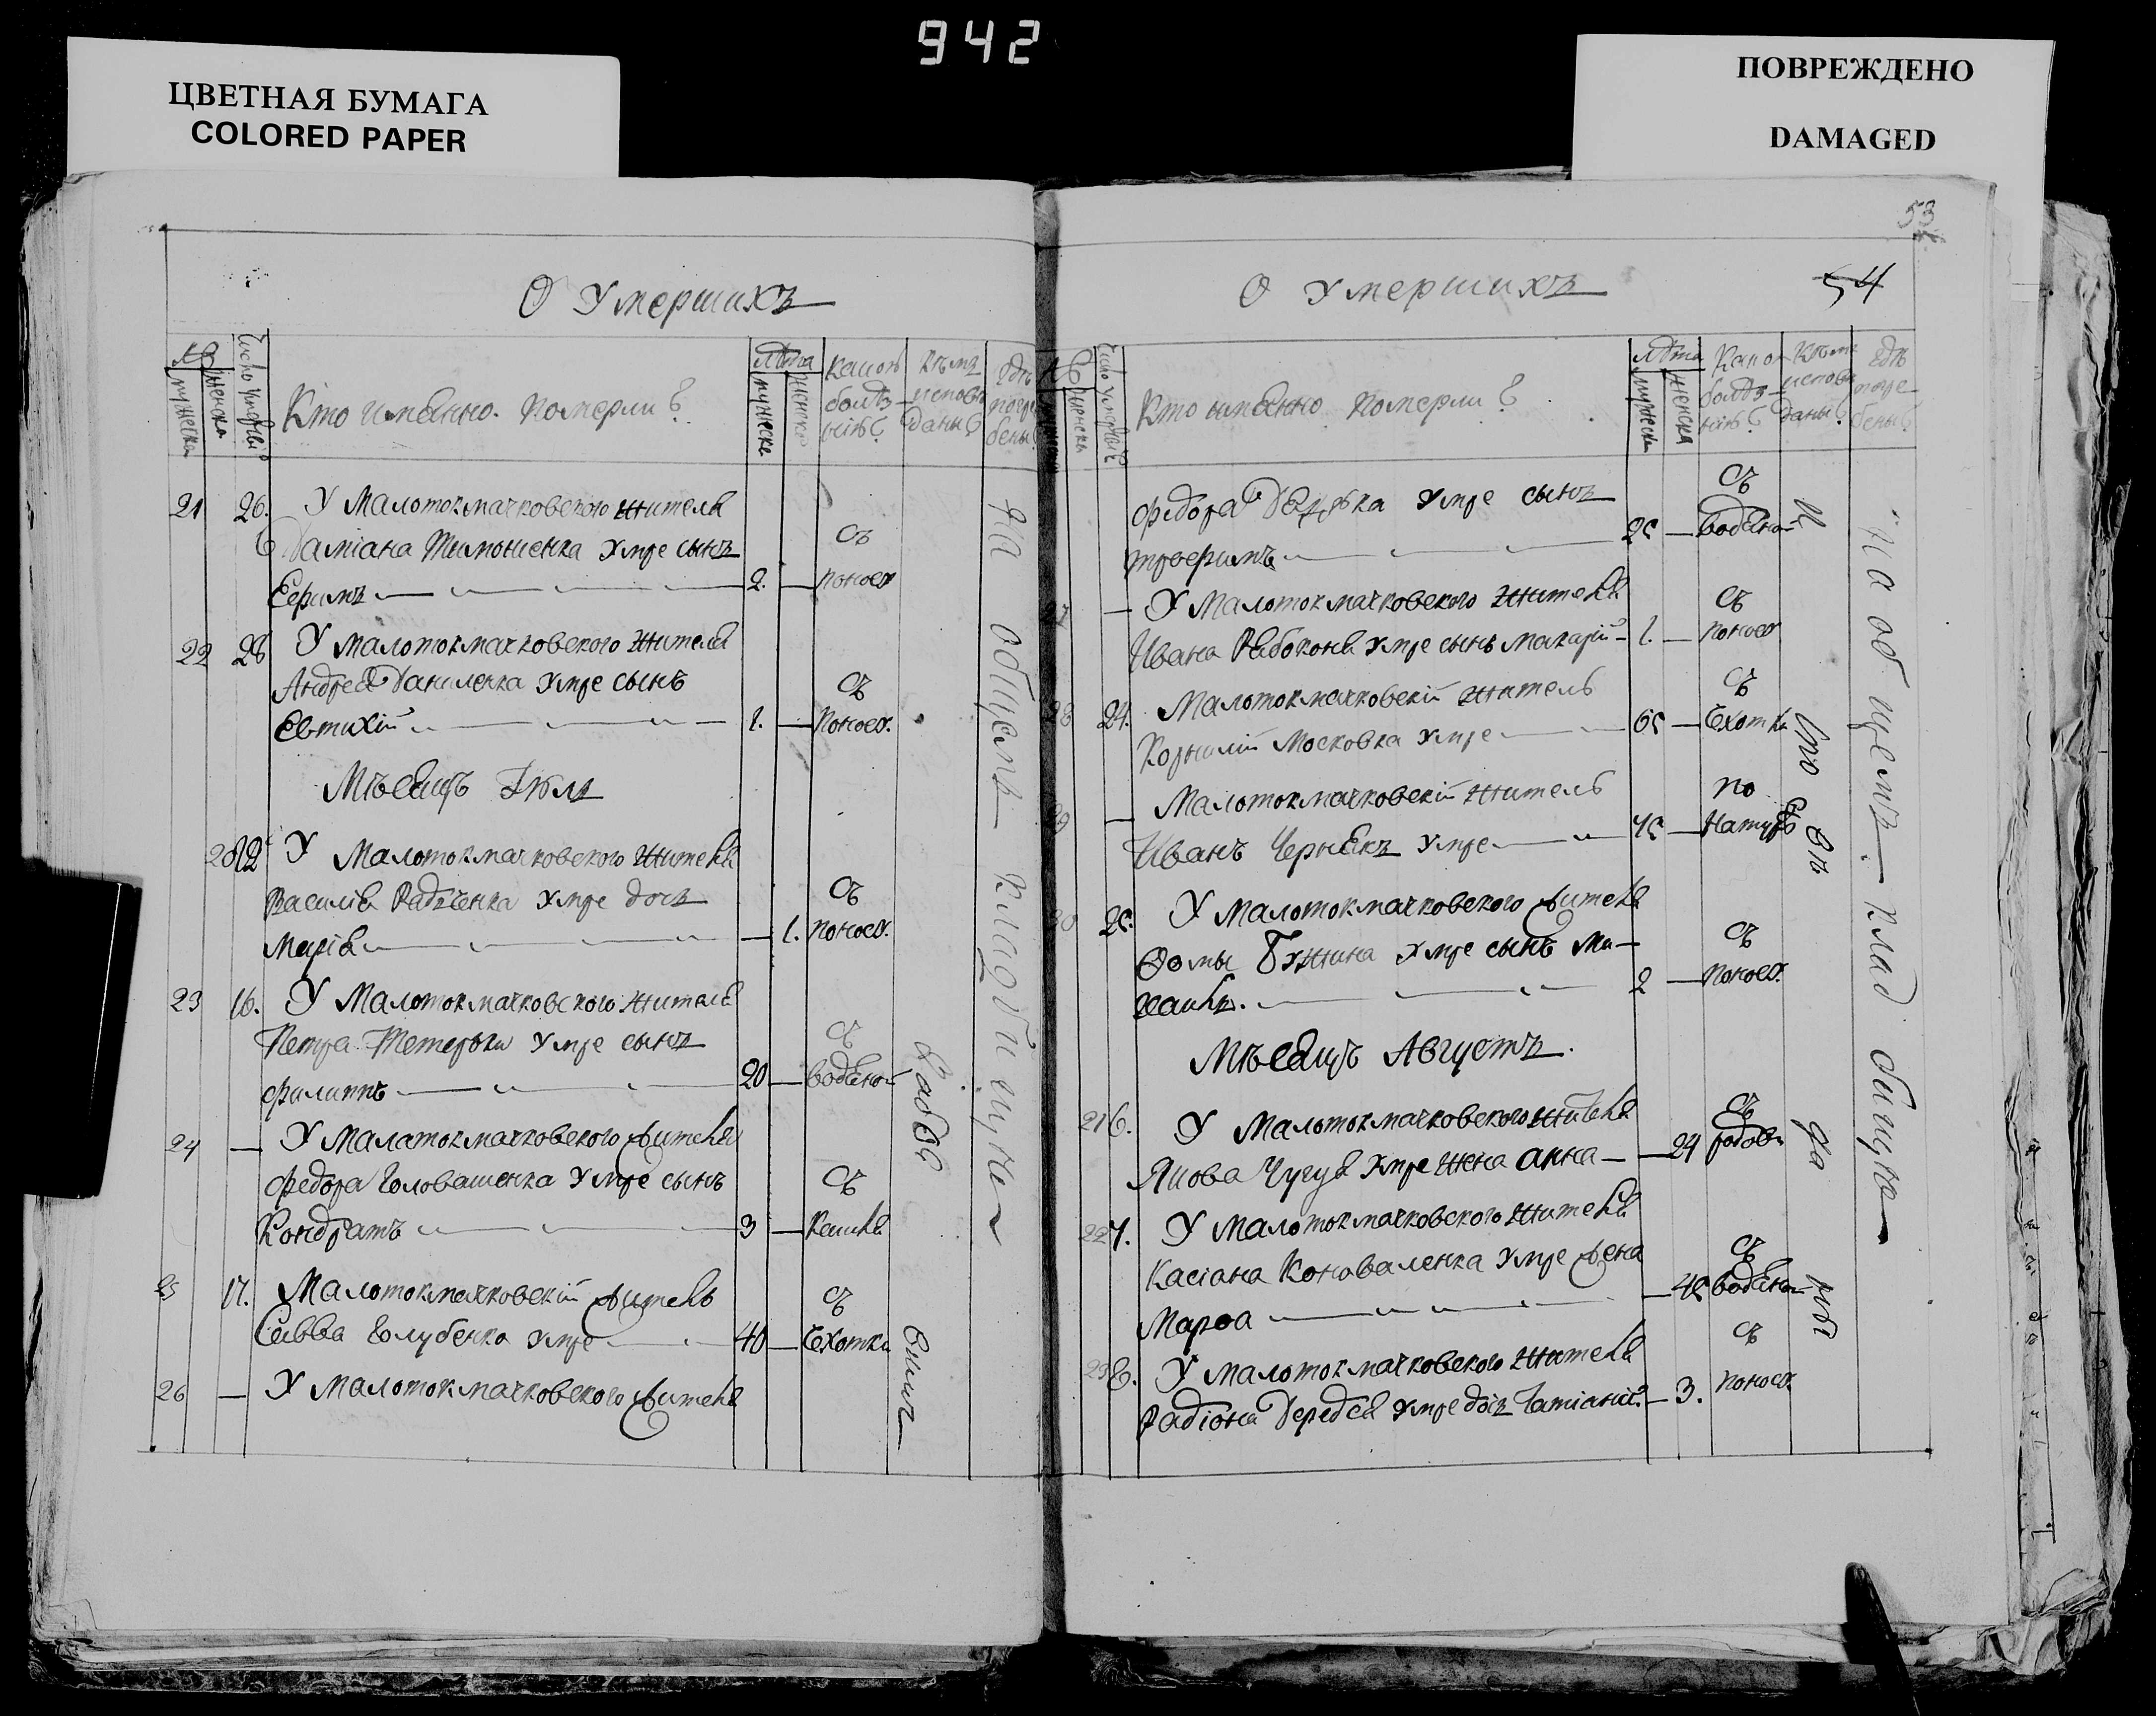 942
ЦВЕТНАЯ БУМАГА
COLORED PAPER
ПОВРЕЖДЕНО
DAMAGED
О Умершихъ
Кто имянно померли?
лѣта
мужеска
женска
какою болѣзнію?
Кѣмъ исповѣданы?
гдѣ погребены?
21 26. У Малотокмачковского жителя
Даміана Тимошенка умре сынъ
Ефимъ 2. съ поносу
22 28 У Малотокмачковского жителя
Андрея Даниленка умре сынъ
Евтихій 1. съ поносу.
Мѣсяцъ Іюль
20 12 У Малотокмачковского жителя
Василія Радченка умре дочь
Марія 1. съ поносу.
23 16. У Малотокмачковского жителя
Петра Тетерки умре сынъ
Филиппъ 20 съ водяной
24 — У Малатокмачковского жителя
Федора Головашенка умре сынъ
Кондратъ 3 съ кашля
25 17. Малотокмачковскій житель
Савва Голубенко умре 40 съ сухотки
26 — У Малотокмачковского жителя
на общемъ кладбищи
53
54
О Умершихъ
Кто имянно померли?
лѣта
мужеска
женска
какою болѣзнію?
Кѣмъ исповѣданы?
гдѣ погребены?
Федора умре сынъ
Трофимъ 25 съ водяной
27 — У Малотокмачковского жителя
Ивана Рябоконя умре сынъ Макарій 1. съ поносу
28 24. Малотокмачковскій житель
Корнилій Московка умре 65 съ сухотки
29 — Малотокмачковскій житель
Иванъ Чернякъ умре 75 по натурѣ
30 25. У Малотокмачковского жителя
Фомы Бужина умре сынъ Ми-
хаилъ. 2 съ поносу.
Мѣсяцъ Августъ.
21 6. У Малотокмачковского жителя
Якова Чугуя умре жена Анна 24 съ родовъ
22 7. У Малотокмачковского жителя
Касіана Коноваленка умре жена
Марѳа 45 съ водяной
23 8. У Малотокмачковского жителя
Радіона умре дочь 3. съ поносу.
на общемъ кладбищи